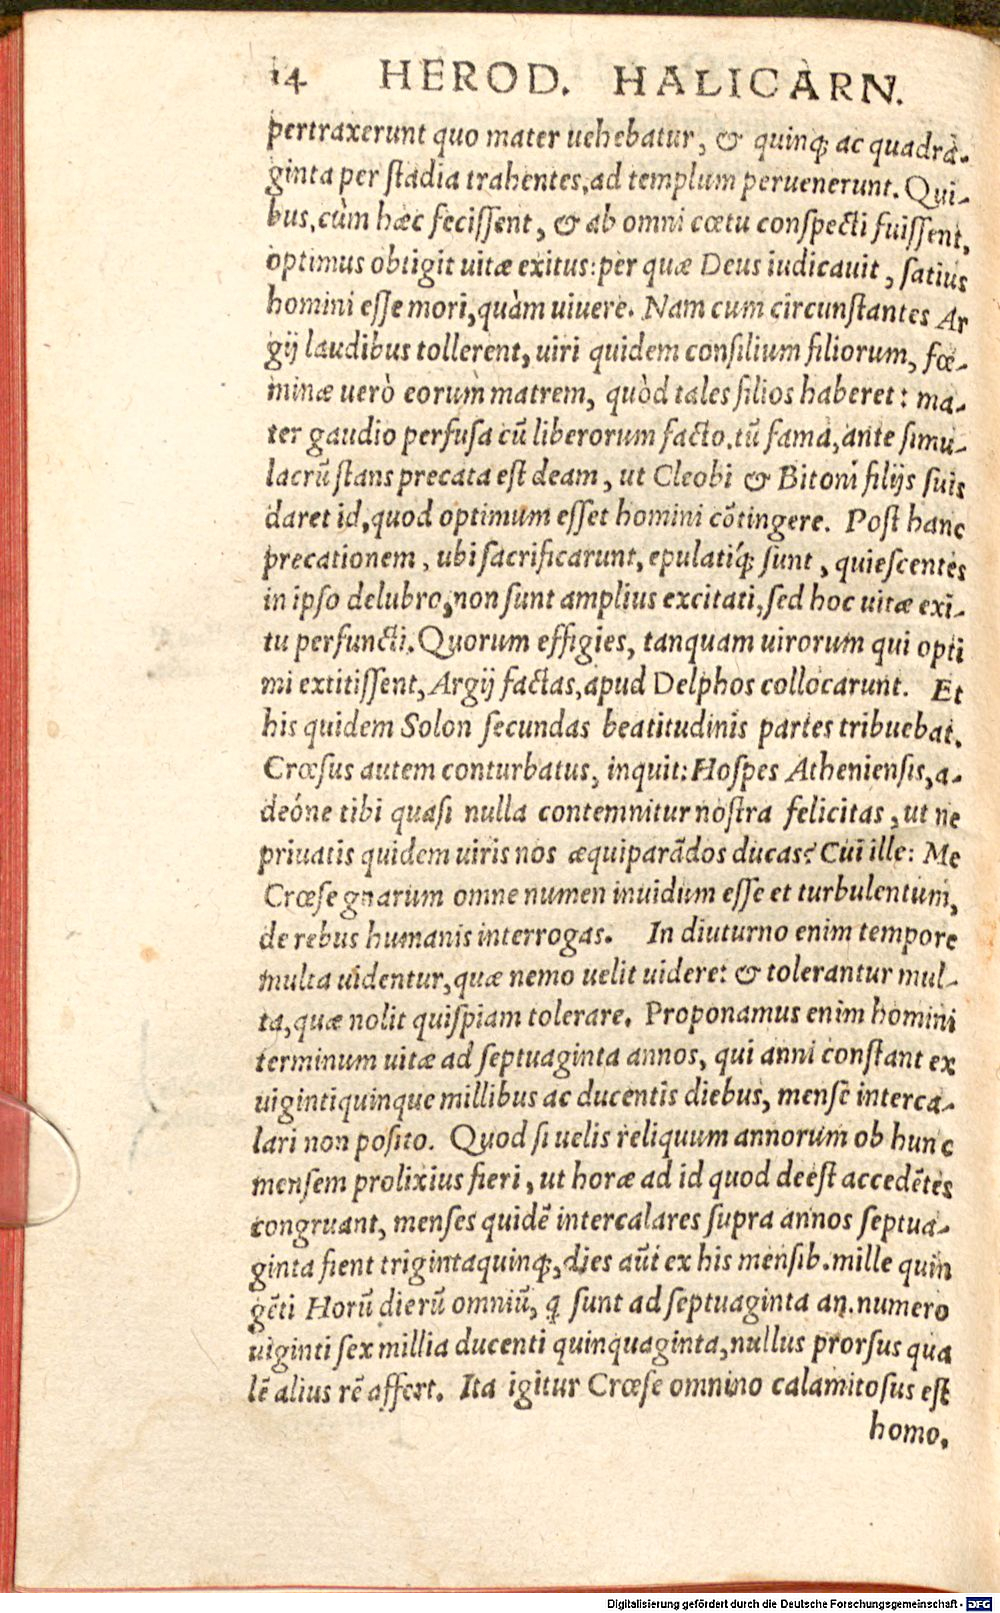 14 HEROD. HALICARN.
pertraxerunt quo mater uehebatur, & quinq; ac quadrà-
ginta per stadia trahentes, ad templum peruenerunt. Qui-
bus, cùm hæc fecissent, & ab omni cœtu conspecti fuissent,
optimus obtigit uitæ exitus: per quæ Deus iudicauit, satius
homini esse mori, quàm uiuere. Nam cum circunstantes Ar
gij laudibus tollerent, uiri quidem consilium filiorum, fœ-
minæ uerò eorum matrem, quòd tales filios haberet: ma-
ter gaudio perfusa cū liberorum facto, tū fama, ante simu-
lacrū stans precata est deam, ut Cleobi & Bitoni filijs suis
daret id, quod optimum esset homini cōtingere. Post hanc
precationem, ubi sacrificarunt, epulatiq́; sunt, quiescentes
in ipso delubro, non sunt amplius excitati, sed hoc uitæ exi-
tu perfuncti. Quorum effigies, tanquam uirorum qui opti
mi extitissent, Argij factas, apud Delphos collocarunt. Et
his quidem Solon secundas beatitudinis partes tribuebat.
Crœsus autem conturbatus, inquit: Hospes Atheniensis, a-
deóne tibi quasi nulla contemnitur nostra felicitas, ut ne
priuatis quidem uiris nos æquiparādos ducas? Cui ille: Me
Crœse gnarum omne numen inuidum esse et turbulentum,
de rebus humanis interrogas. In diuturno enim tempore
multa uidentur, quæ nemo uelit uidere: & tolerantur mul-
ta, quæ nolit quispiam tolerare. Proponamus enim homini
terminum uitæ ad septuaginta annos, qui anni constant ex
uigintiquinque millibus ac ducentis diebus, mense interca-
lari non posito. Quod si uelis reliquum annorum ob hunc
mensem prolixius fieri, ut horæ ad id quod deest accedētes
congruant, menses quidē intercalares supra annos septua-
ginta fient trigintaquinq;, dies aūt ex his mensib. mille quin
gēti Horū dierū omniū, q̄ sunt ad septuaginta an. numero
uiginti sex millia ducenti quinquaginta, nullus prorsus qua
lē alius rē affert. Ita igitur Crœse omnino calamitosus est
homo.
Digitalisierung gefördert durch die Deutsche Forschungsgemeinschaft - DFG